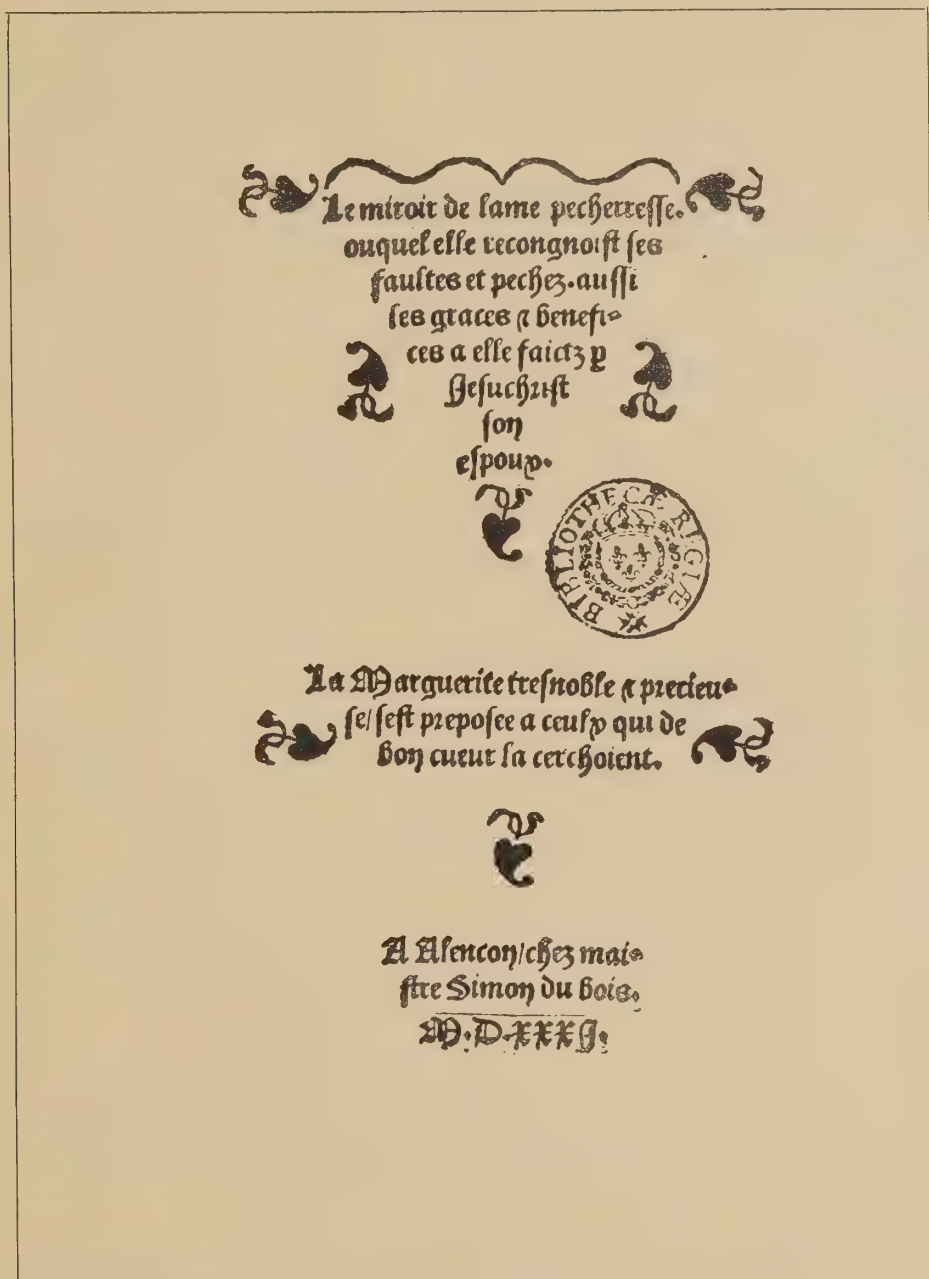 Le miroir de lame pecherresse.
ouquel elle recongnoist ses
faultes et pechez. aussi
ses graces ⁊ benefi-
ces a elle faictz ꝑ
Jesuchrist
son
espoux.
BIBLIOTHECÆ REGIÆ
La Marguerite tresnoble ⁊ precieu-
se/sest preposee a ceulx qui de
bon cueur la cerchoient.
A Alencon/chez mai-
stre Simon du bois.
M.D.XXXJ.